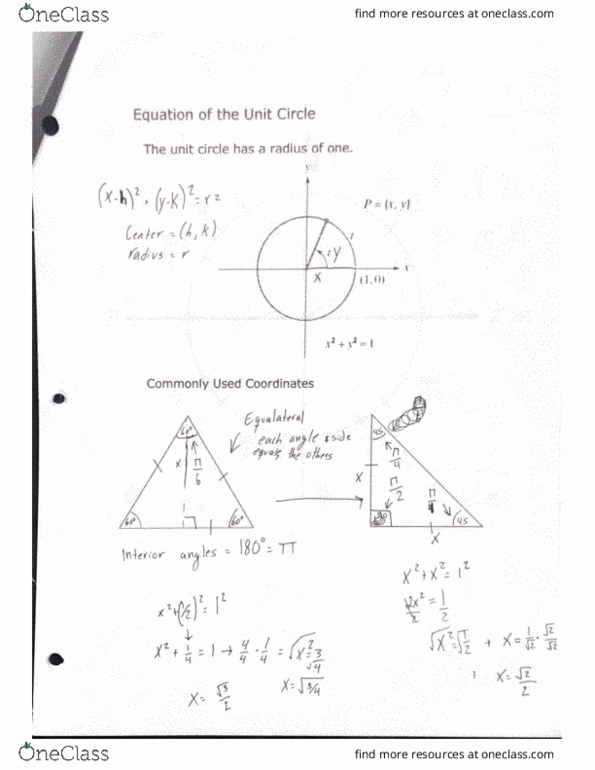 OneClass
find more resources at oneclass.com
Equation of the Unit Circle
The unit circle has a radius of one.
(x-h)² + (y-k)² = r²
Center = (h, k)
radius = r
y
P = (x, y)
t
y
x
x
(1,0)
x² + y² = 1
Commonly Used Coordinates
60°
Equalateral
each angle & side
equals the others
45
x
π/6
π/4
x
π/2
π/4
60°
60°
45
x
Interior angles = 180° = π
x² + x² = 1²
x² + (1/2)² = 1²
2x²/2 = 1/2
√x² = √1/√2
x = 1/√2 · √2/√2
x² + 1/4 = 1 → 4/4 - 1/4 = √x² = 3/√4
x = √3/2
x = √3/4
x = √2/2
OneClass
find more resources at oneclass.com